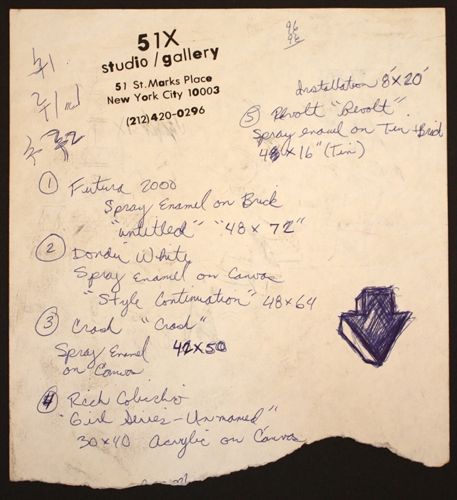 51X
studio/gallery
51 St. Marks Place
New York City 10003
(212)420-0296
96
96
뉘
뒤
Installation 8'x20'
⑤ Revolt "Revolt"
Spray enamel on Tin + Brick
48x16" (Tin)
① Futura 2000
Spray Enamel on Brick
"untitled" "48 x 72"
② Dondi White
Spray Enamel on Canvas
"Style Continuation" 48x64
③ Crash "Crash"
Spray Enamel 42x50
on Canvas
④ Rich
"Girl Series - Unnamed"
30x40 Acrylic on Canvas